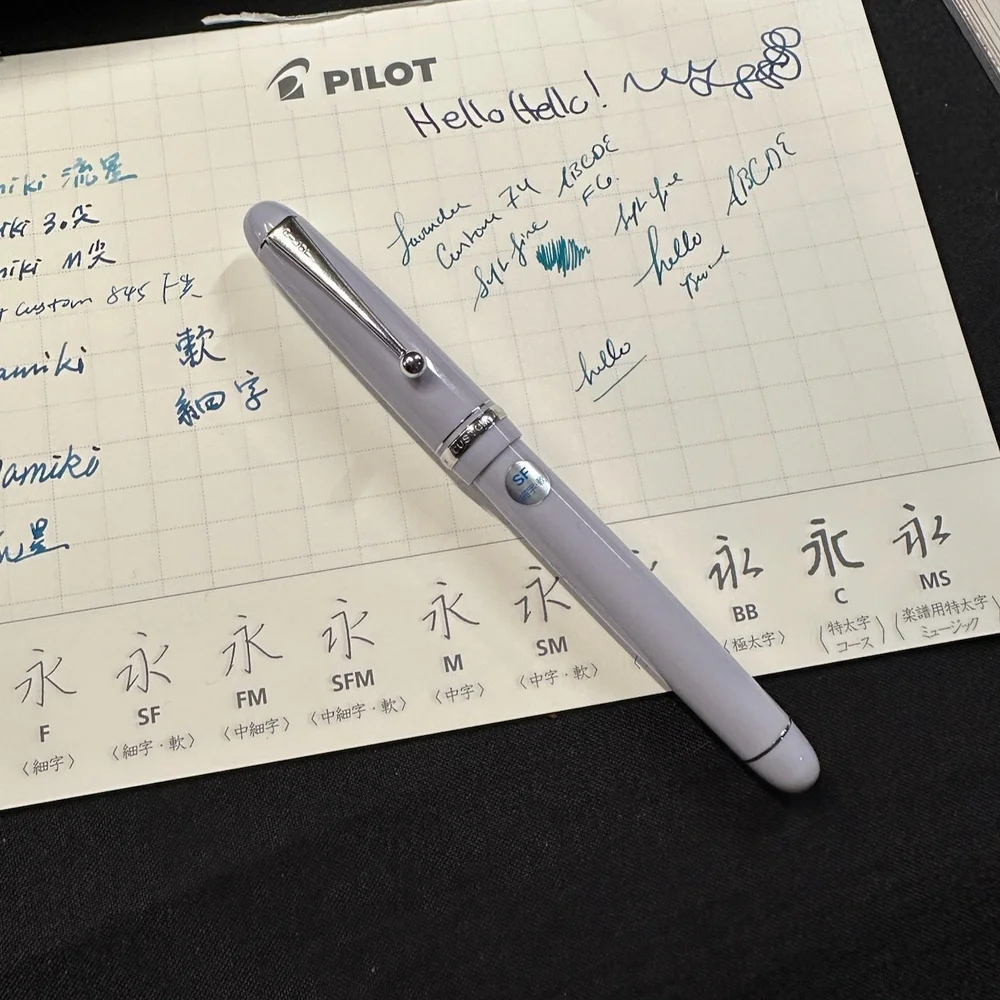 PILOT
Hello Hello!
流星
3.尖
M尖
custom 845 F尖
amiki 軟
細字
amiki
星
Lavender
Custom 74 ABCDE
FG.
Soft fine
Soft fine ABCDE
hello
hello
CUSTOM
SF
永 永 永 永 永 永 永 永 永
F SF FM SFM M SM BB C MS
〈細字〉 〈細字・軟〉 〈中細字〉 〈中細字・軟〉 〈中字〉 〈中字・軟〉 極太字〉 〈特太字 〈楽譜用特太字
コース〉 ミュージック〉